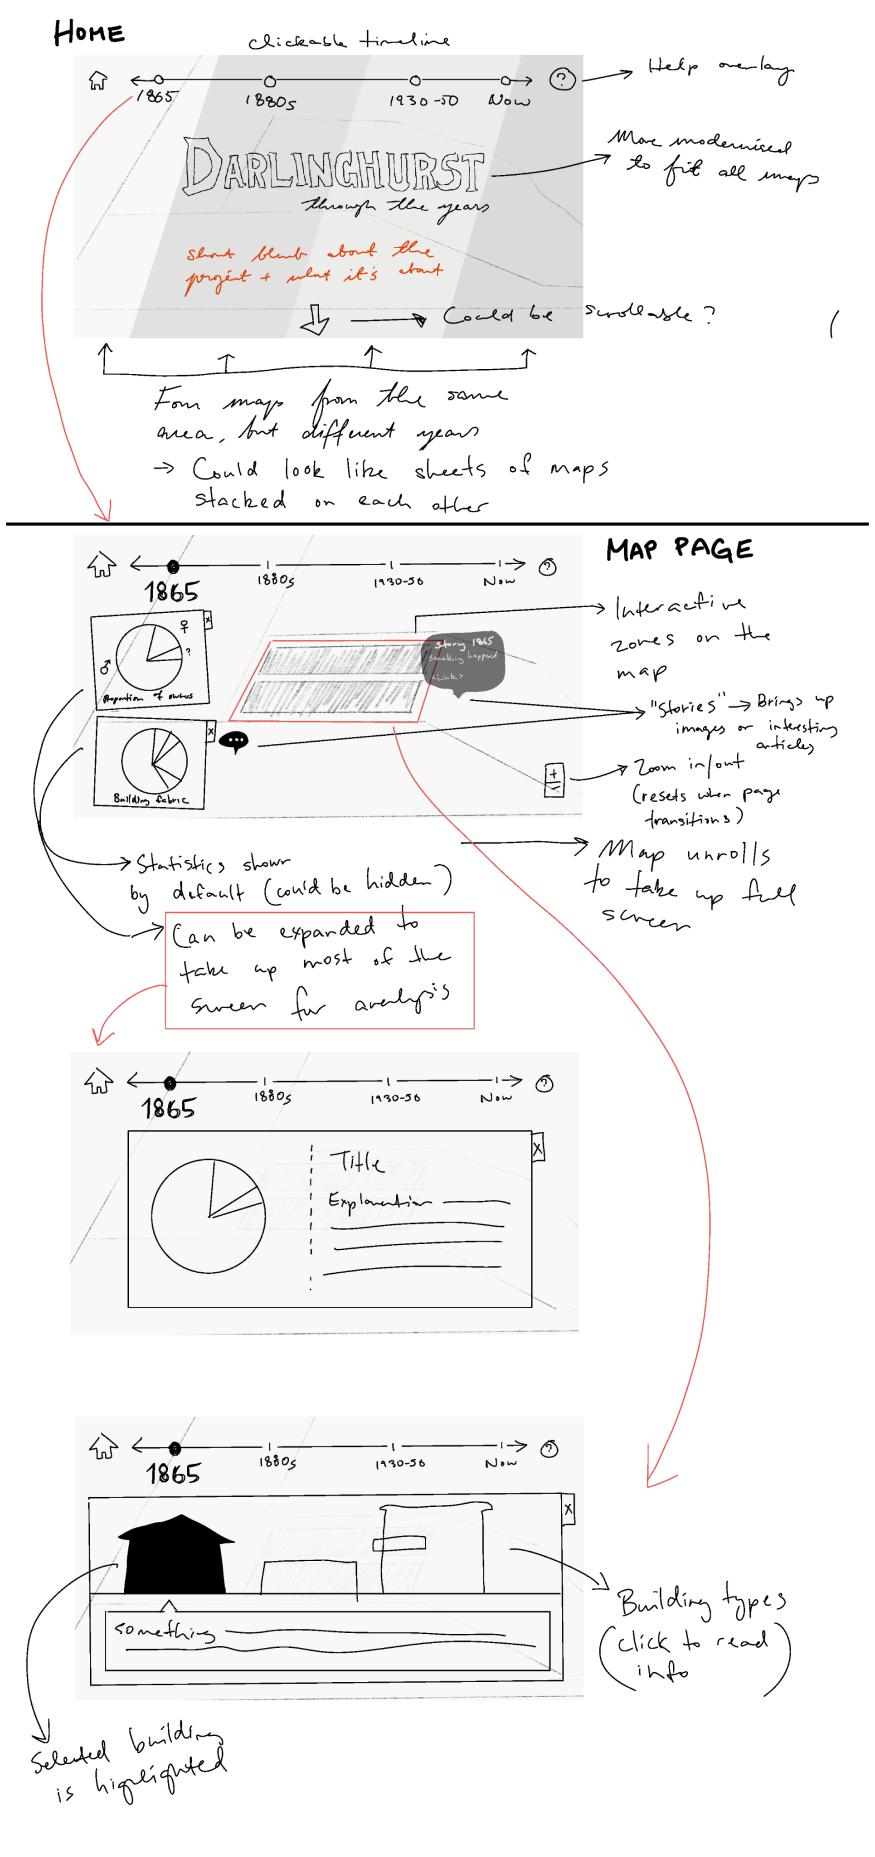 HOME
clickable timeline
1865
1880s
1930-50
Now
?
Help overlay
DARLINGHURST
through the years
More modernised
to fit all maps
short blurb about the
project + what it's about
Could be scrollable?
Four maps from the same
area, but different years
→ Could look like sheets of maps
stacked on each other
MAP PAGE
1865
1880s
1930-50
Now
?
♀
♂
?
x
Proportion of owners
x
Building fabric
Story, 1865
something happened
<Link>
Interactive
zones on the
map
"Stories" → Brings up
images or interesting
articles
+
-
Zoom in/out
(resets when page
transitions)
Map unrolls
to take up full
screen
Statistics shown
by default (could be hidden)
Can be expanded to
take up most of the
screen for analysis
1865
1880s
1930-50
Now
?
x
Title
Explanation
1865
1880s
1930-50
Now
?
x
something
Building types
(click to read
info)
Selected building
is highlighted